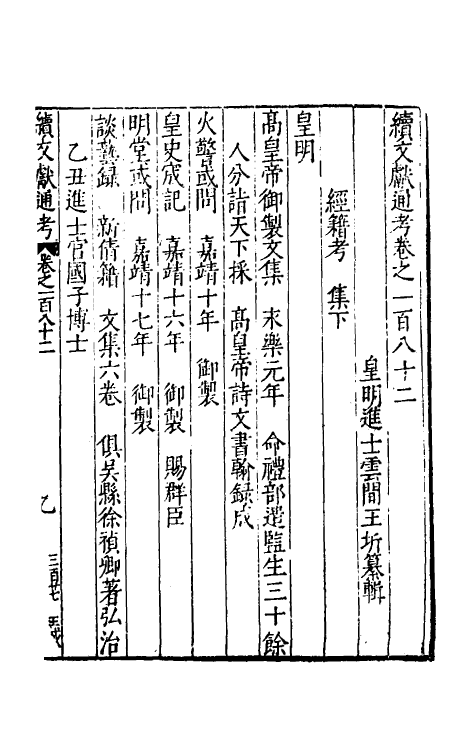 續文獻通考卷之一百八十二
皇明進士雲間王圻纂輯
經籍考 集下
皇明
高皇帝御製文集 永樂元年 命禮部選監生三十餘
人分詣天下採 高皇帝詩文書翰録成
火警或問 嘉靖十年 御製
皇史宬記 嘉靖十六年 御製 賜群臣
明堂或問 嘉靖十七年 御製
談藝録 新倩籍 文集六卷 俱吳縣徐禎卿著弘治
乙丑進士官國子博士
續文獻通考 卷之一百八十二 乙